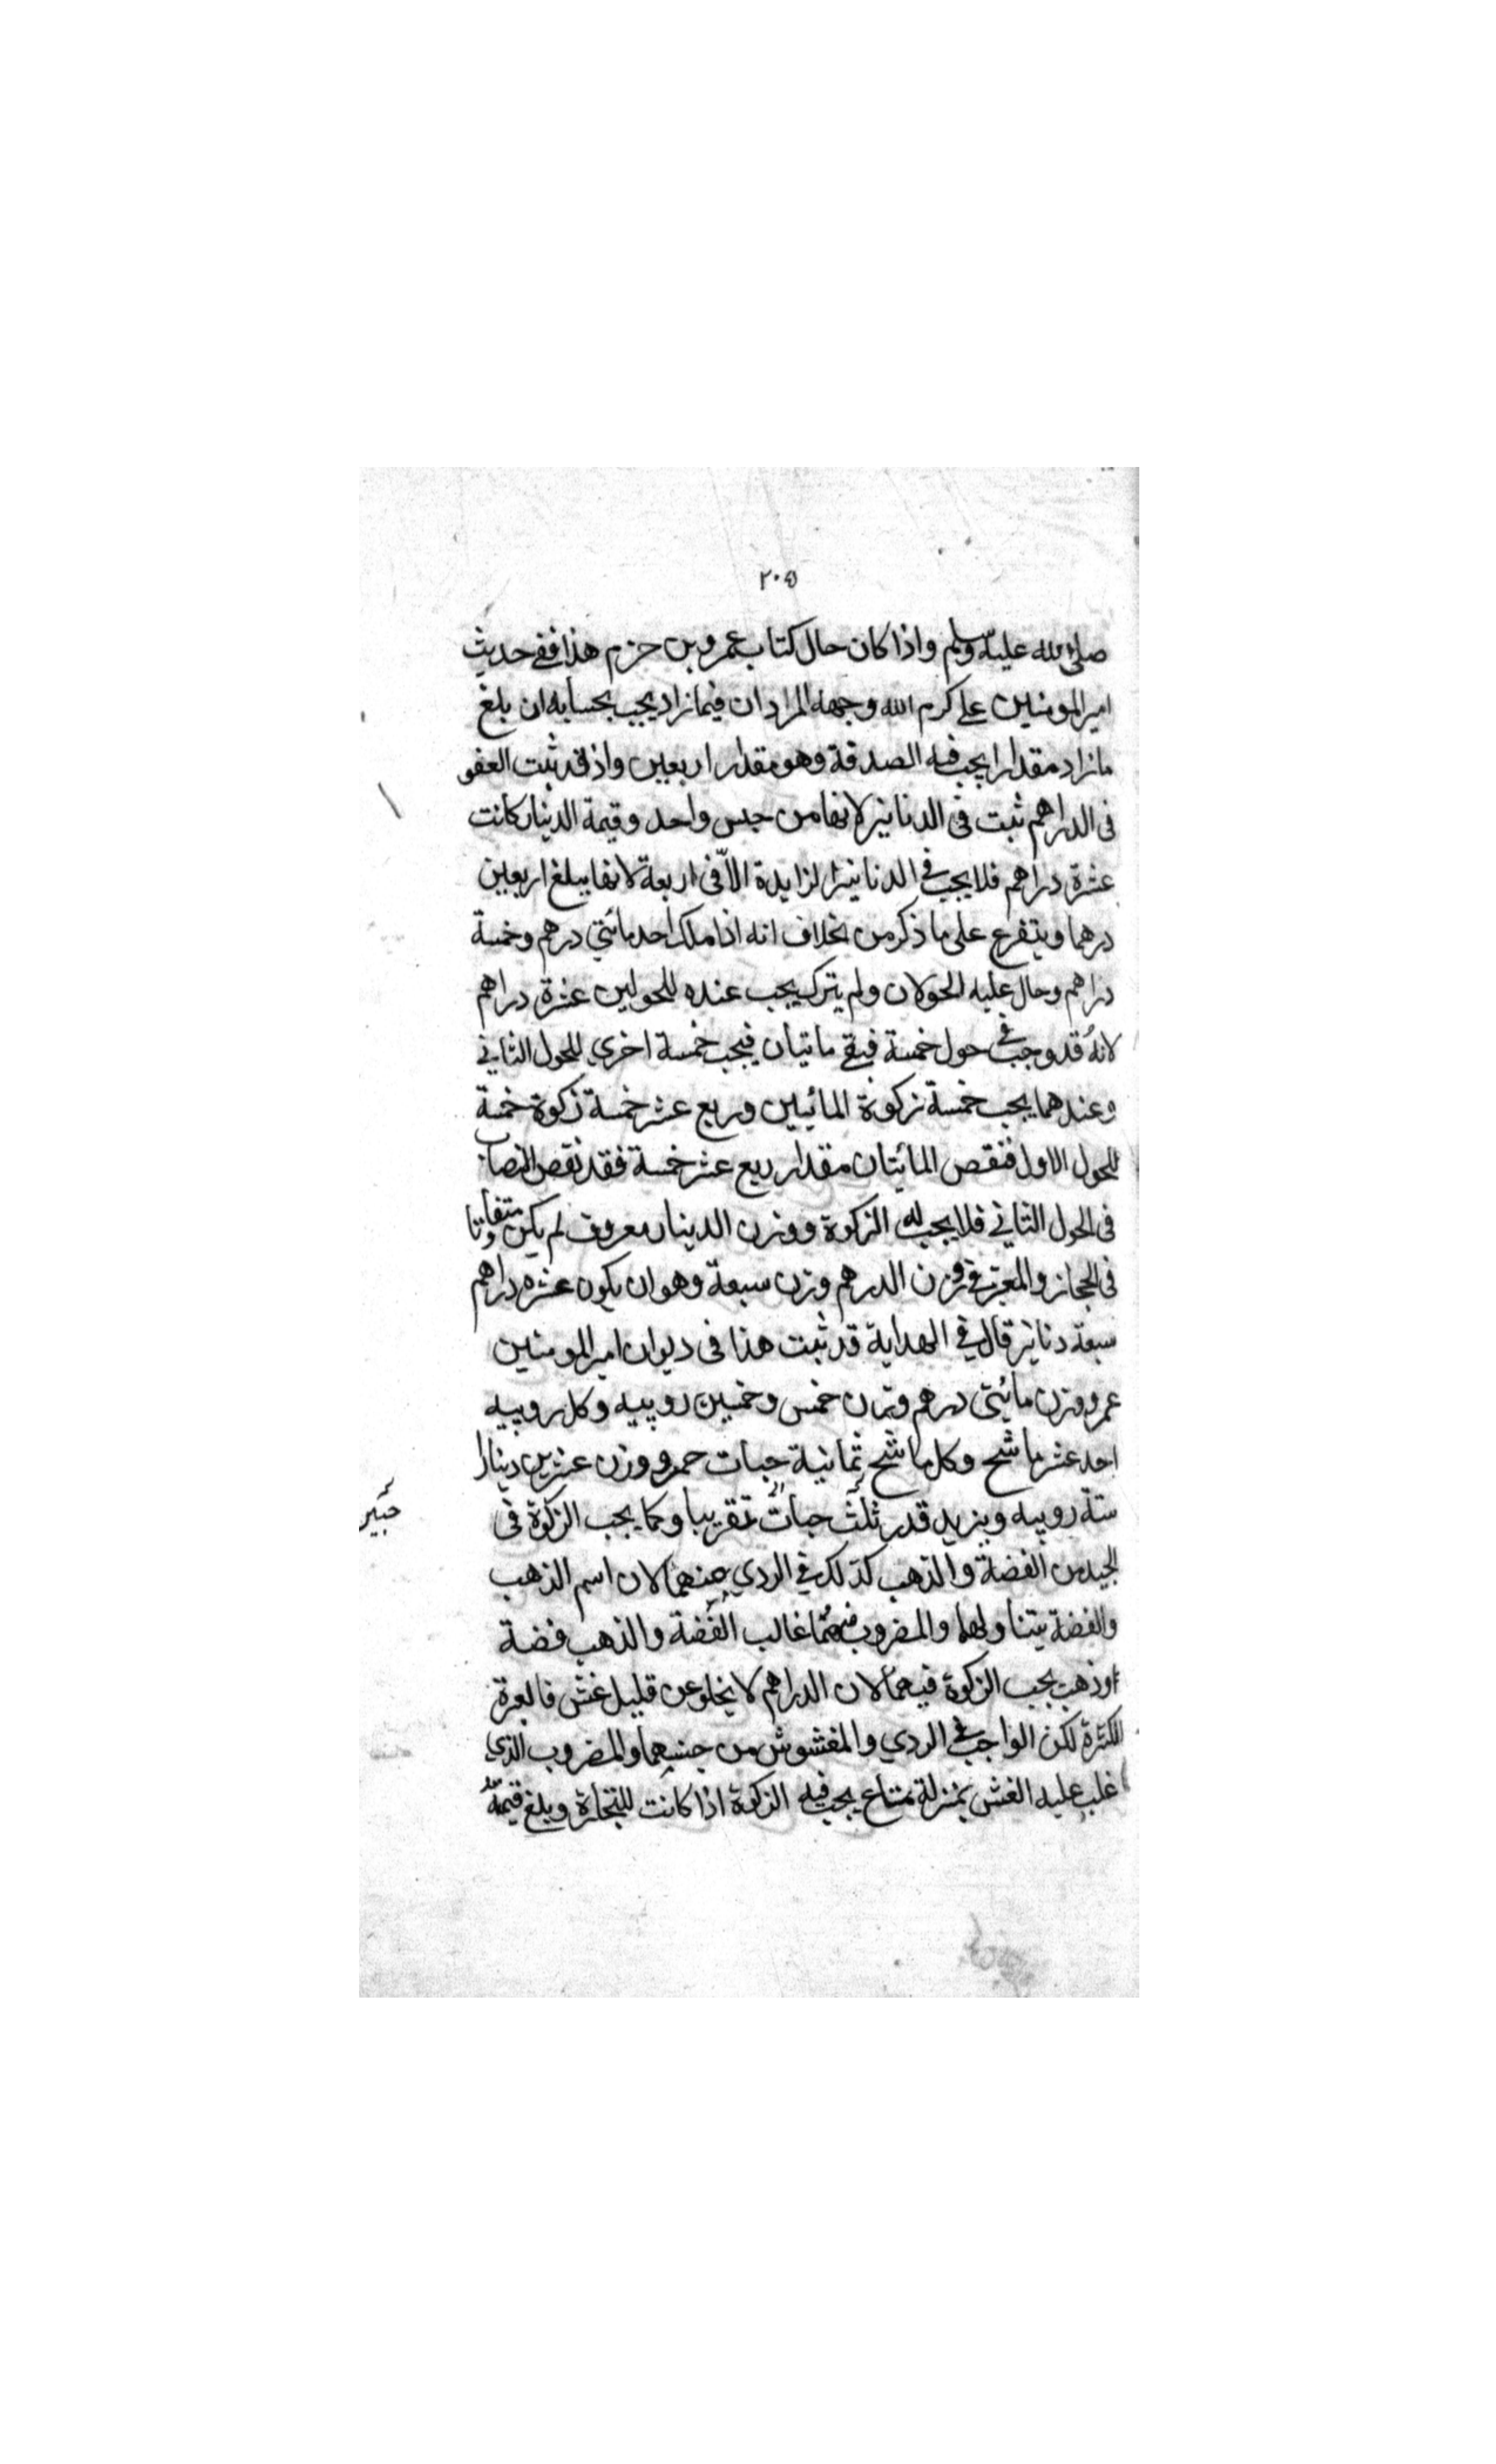 ٢٠٥
صلى الله عليه وسلم واذا كان حال كتاب عمرو بن حزم هذا ففى حديث
امير المومنين على كرم الله وجهه المراد ان فيما زاد يجب بحسابه ان بلغ
ما زاد مقدارا يجب فيه الصدقة وهو مقدار اربعين واذ قد ثبت العفو
فى الدراهم ثبت فى الدنانير لانها من جنس واحد وقيمة الدينار كانت
عشرة دراهم فلا يجب فى الدنانير الزايدة الّا فى اربعة لانها يبلغ اربعين
درهما ويتفرع على ما ذكر من خلاف انه اذا ملك احد مائتى درهم وخمسة
دراهم وحال عليه الحولان ولم يترك يجب عنده للحولين عشرة دراهم
لانهُ قد وجب فى حول خمسة فبقى ماتيان فيجب خمسة اخرى للحول الثانى
وعندهما يجب خمسة زكوة المائيلين وربع عشر خمسة زكوة خمسة
للحول الاول فنقص المائيتان مقدار ربع عشر خمسة فقد نقص النصاب
فى الحول الثانى فلا يجب له الزكوة ووزن الدينار معروف لم يكن متفاوتا
فى الحجاز والمعتبر فى وزن الدرهم وزن سبعة وهو ان يكون عشره دراهم
سبعة دنانير قال فى الهداية قد ثبت هذا فى ديوان امير المومنين
عمر ووزن مائيتى درهم وزن خمس وخمسين روپيه وكل روپيه
احد عشر ماشح وكل ماشح ثمانية حبات حمر ووزن عشرين دينارا
ستة روپيه ويزيد قدر ثلث حبات تقريبا وكما يجب الزكوة فى
الجيد من الفضة والذهب كذلك فى الردي منهما لان اسم الذهب
والفضة يتناولهما والمضروب منهما غالب الفضة والذهب فضة
اوذهب يجب الزكوة فيهما لان الدراهم لا يخلو عن قليل غش فالعبرة
للكثرة لكن الواجب فى الردي والمغشوش من جنسهما والمضروب الذي
غلب عليه الغش بمنزلة متاع يجب فيه الزكوة اذا كانت للتجارة وبلغ قيمته